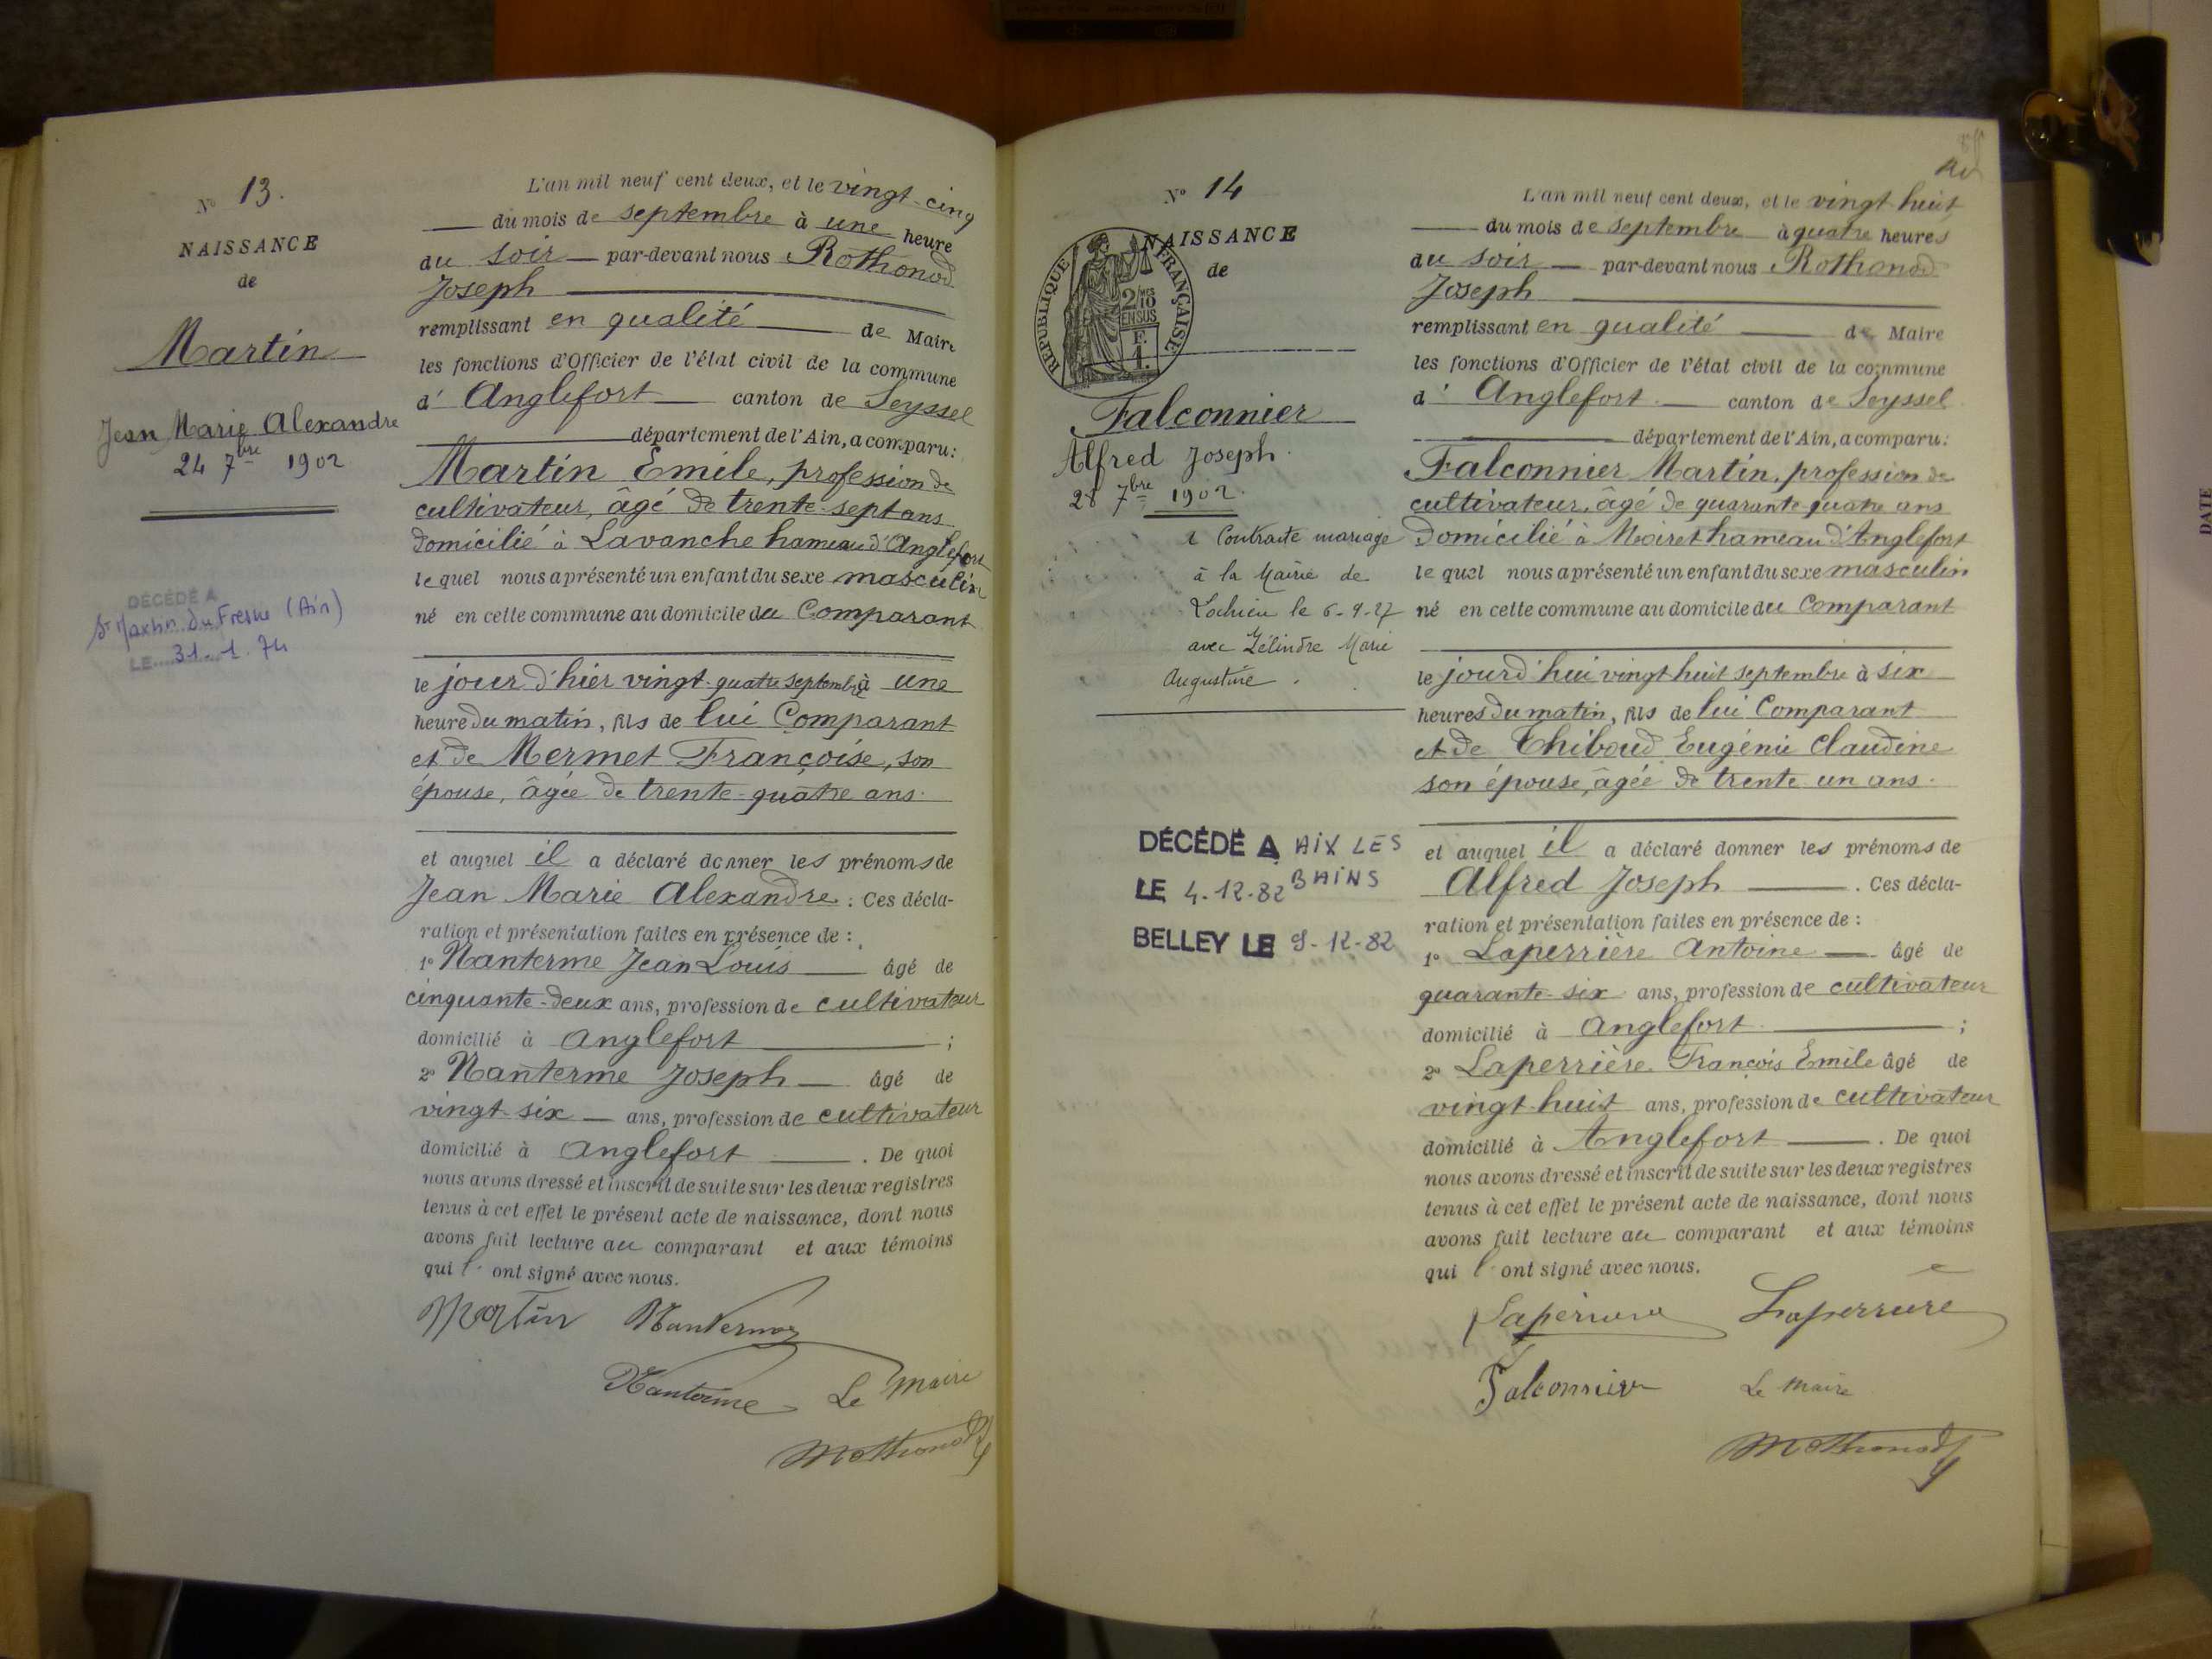 N° 13.
NAISSANCE
de
Martin
Jean Marie Alexandre
24 7bre 1902
DÉCÉDÉ A
St Martin du Fresne (Ain)
LE 31.1.74
L'an mil neuf cent deux, et le vingt-cinq
du mois de septembre à une heure
du soir par-devant nous Rothonod
Joseph
remplissant en qualité de Maire
les fonctions d'Officier de l'état civil de la commune
d' Anglefort canton de Seyssel
département de l'Ain, a comparu:
Martin Emile, profession de
cultivateur, âgé de trente-sept ans
domicilié à Lavanche hameau d'Anglefort
lequel nous a présenté un enfant du sexe masculin
né en cette commune au domicile du Comparant
le jour d'hier vingt-quatre septembre à une
heure du matin, fils de lui Comparant
et de Mermet Françoise, son
épouse, âgée de trente-quatre ans.
et auquel il a déclaré donner les prénoms de
Jean Marie Alexandre. Ces décla-
ration et présentation faites en présence de :
1° Nanterme Jean Louis âgé de
cinquante-deux ans, profession de cultivateur
domicilié à Anglefort ;
2° Nanterme Joseph âgé de
vingt-six ans, profession de cultivateur
domicilié à Anglefort . De quoi
nous avons dressé et inscrit de suite sur les deux registres
tenus à cet effet le présent acte de naissance, dont nous
avons fait lecture au comparant et aux témoins
qui l' ont signé avec nous.
Martin Nantermoz
Nanterme Le Maire
Rothonod
N° 14
NAISSANCE
de
REPUBLIQUE FRANÇAISE
2/10mes
EN SUS
F.
1.
Falconnier
Alfred Joseph.
28 7bre 1902.
a Contracté mariage
à la Mairie de
Lochieu le 6-9-27
avec Zélindre Marie
Augustine.
DÉCÉDÉ A AIX LES
BAINS
LE 4-12-82
BELLEY LE 9-12-82
L'an mil neuf cent deux, et le vingt-huit
du mois de septembre à quatre heures
du soir par-devant nous Rothonod
Joseph
remplissant en qualité de Maire
les fonctions d'Officier de l'état civil de la commune
d' Anglefort canton de Seyssel
département de l'Ain, a comparu:
Falconnier Martin, profession de
cultivateur, âgé de quarante-quatre ans
domicilié à Moiret hameau d'Anglefort
lequel nous a présenté un enfant du sexe masculin
né en cette commune au domicile du Comparant
le jourd'hui vingt huit septembre à six
heures du matin, fils de lui Comparant
et de Thiboud Eugénie Claudine
son épouse, âgée de trente un ans.
et auquel il a déclaré donner les prénoms de
Alfred Joseph . Ces décla-
ration et présentation faites en présence de :
1° Laperrière Antoine âgé de
quarante-six ans, profession de cultivateur
domicilié à Anglefort ;
2° Laperrière François Emile âgé de
vingt-huit ans, profession de cultivateur
domicilié à Anglefort . De quoi
nous avons dressé et inscrit de suite sur les deux registres
tenus à cet effet le présent acte de naissance, dont nous
avons fait lecture au comparant et aux témoins
qui l' ont signé avec nous.
Laperriere Laperrière
Falconnier Le Maire
Rothonod
DATE